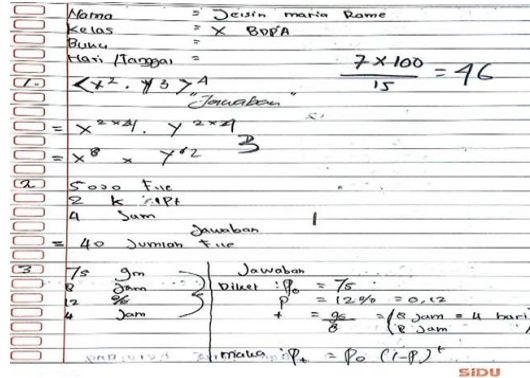 Nama = Jeisin maria Rame
Kelas = X BDPA
Buku =
Hari /Tanggal =
7 x 100 / 15 = 46
1. <x². y3>4
"Jawaban"
= x 2x4 . y 2x4
3
= x8 x y12
2 5000 File
2 k
4 Jam
Jawaban
= 40 Jumlah File
3 75 gm
8 Jam
12 %
4 Jam
Jawaban
Diket : Po = 75
P = 12% = 0,12
t = 96/8 = (8 Jam = 4 hari)
8 Jam
maka : Pt = Po (1-P)t
SIDU